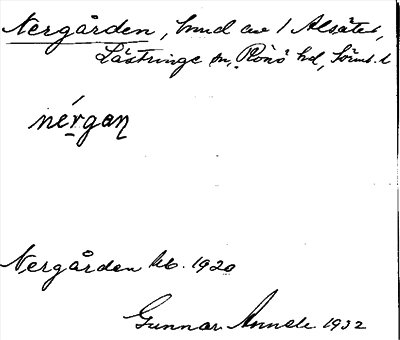 Nergården, bmd av 1 Alsäter,
Lästringe sn, Rönö hd, Sörml. l
nérgan
Nergården kb. 1920
Gunnar Annell 1932